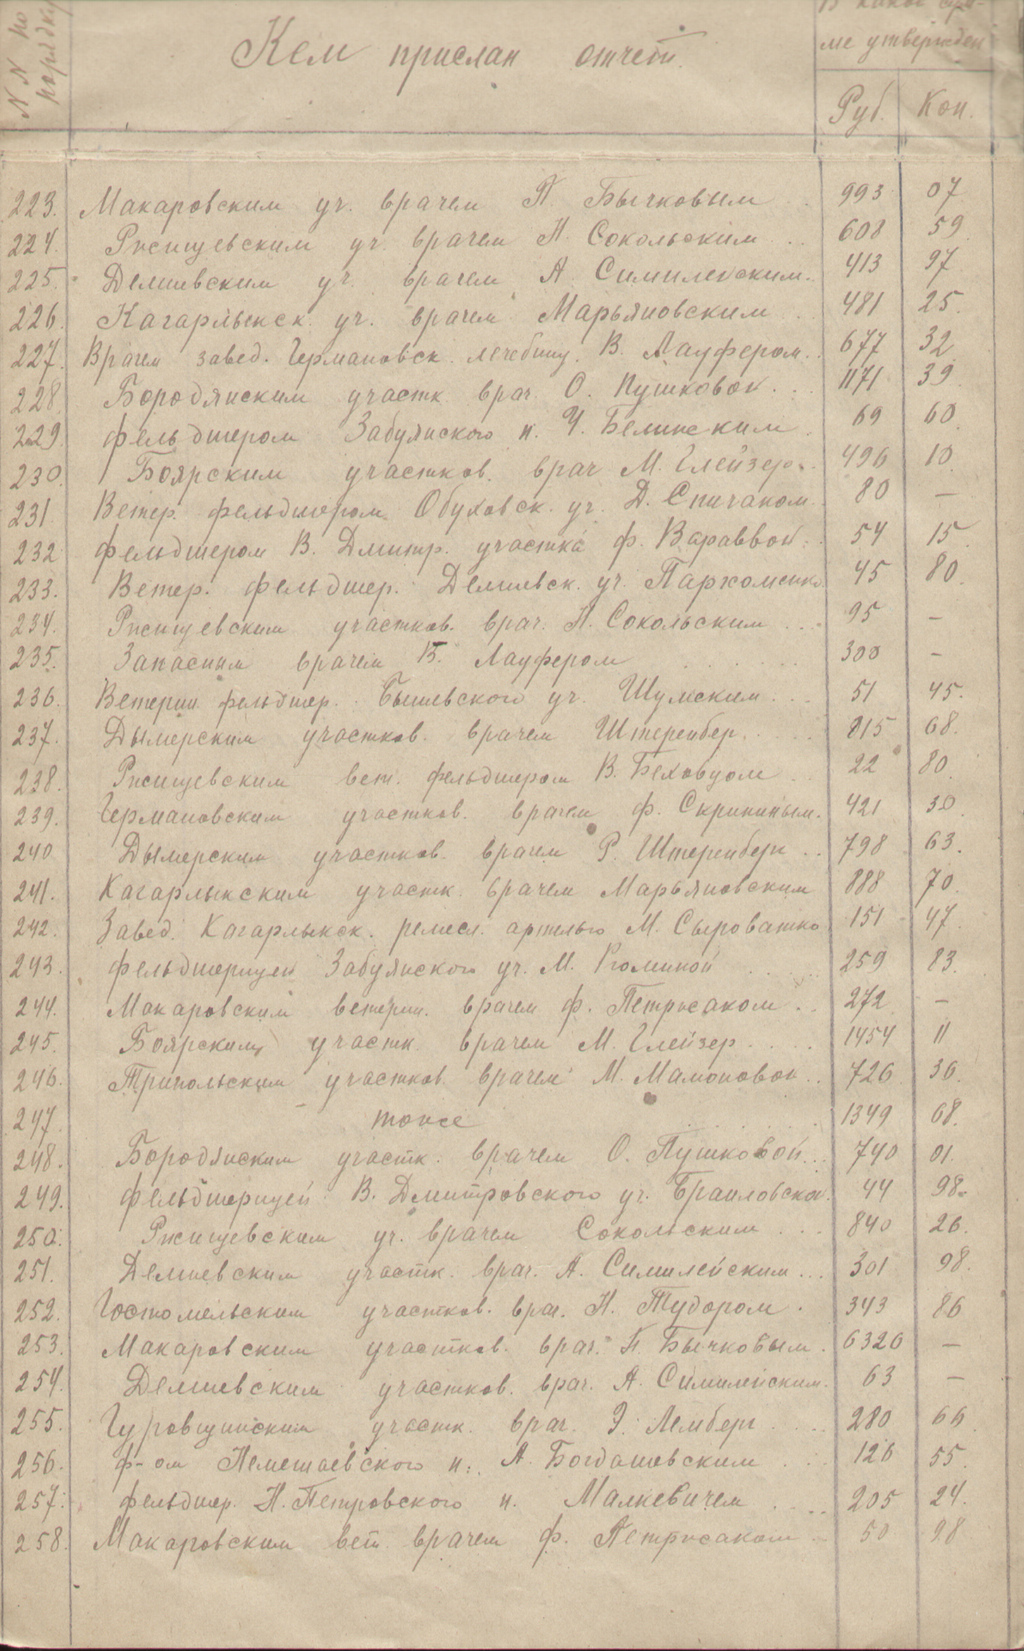 N N по порядку
Кем прислан отчет.
В какой сум-
ме утвержден
Руб. Коп.
223. Макаровским уч. врачем П. Бычковым 993 07
224. Ржищевским уч. врачем Н. Сокольским 608 59
225. Демиевским уч. врачем А. Симилейским. 413 97
226. Кагарлыкск. уч. врачем Марьяновским 481 25.
227. Врачем завед. Германовск. лечебниц. В. Лауфером. 677 32
228. Бородянским участк врач. О. Пушковой. 1171 39
229. фельдшером Забуянского п. Ч. Белинским 69 60.
230. Боярским участков. врач М. Глейзер. 496 10.
231. Ветер. фельдшером Обуховск. уч. Д. Спичаком. 80 —
232 Фельдшером В. Дмитр. участка ф. Вараввой. 54 15.
233. Ветер. фельдшер. Демиевск. уч. Пархоменко 45 80.
234. Ржищевским участков. врач. Н. Сокольским 95 —
235. Запасным врачем В. Лауфером 300 —
236. Ветерин фельдшер. Бышевского уч. Шумским 51 45.
237. Дымерским участков. врачем Штеренбер. 815 68.
238. Ржищевским вет. фельдшером В. Беховцом 22 80.
239. Германовским участков. врачем ф. Скрипиным. 421 30
240 Дымерским участков. врачем Р. Штеренберг 798 63.
241. Кагарлыкским участк. врачем Марьяновским 888 70.
242. Завед. Кагарлыкск. ремесл. артелью М. Сыроватко 151 47.
243. фельдшерицей Забуянского уч. М. 259 83.
244. Макаровским ветерин. врачем ф. Петрусаком 272 —
245. Боярским участк. врачем М. Глейзер 1454 11
246. Трипольским участков. врачем М. Мамоновой 726 36.
247. тоже 1349 68.
248. Бородянским участк. врачем О. Пушковой 740 01.
249. Фельдшерицей В. Дмитровского уч. Браиловской. 44 98.
250. Ржищевским уч. врачем Сокольским 840 26.
251. Демиевским участк. врач. А. Симилейским 301 98.
252. Гостомельским участков. врач. Н. Тудором. 343 86
253. Макаровским участков. врач. П. Бычковым. 6320 —
254. Демиевским участков. врач. А. Симилейским. 63 —
255. Гуровщинским участк. врач. Э. Лемберг 280 66
256. ф-ом Немешаевского п. А. Богдашевским 126 55.
257. фельдшер. Н. Петровского п. Малкевичем 205 24.
258. Макаровским вет. врачем ф. Петрусаком 50 98